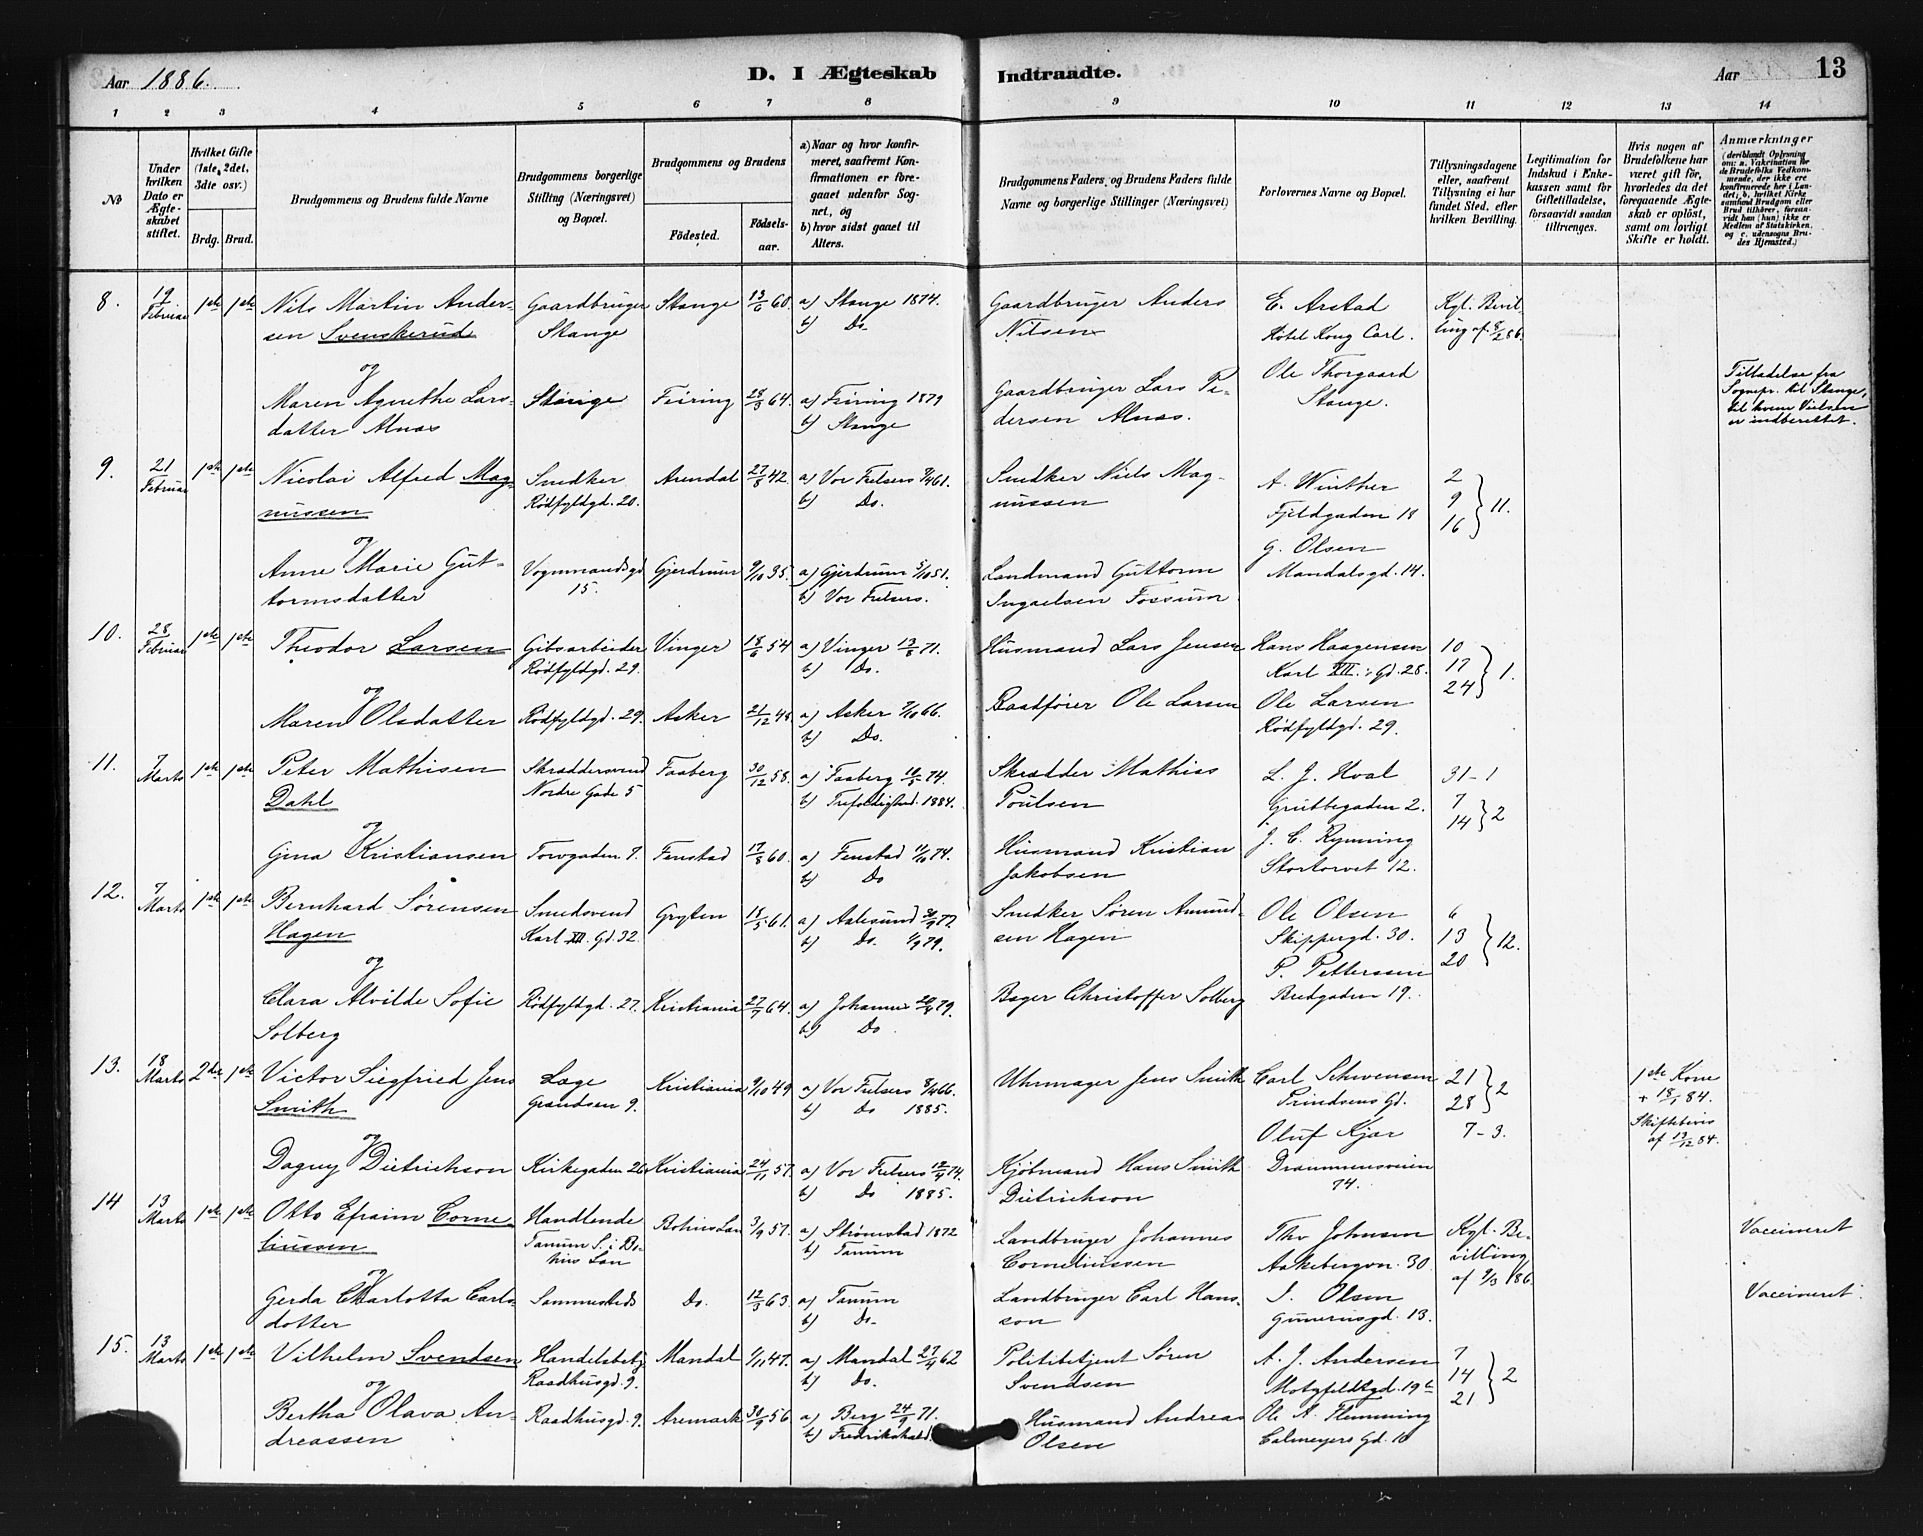 Aar 1886.
D. I Ægteskab Indtraadte.
Aar 13
1 2 3 4 5 6 7 8 9 10 11 12 13 14
№
Under hvilken Dato er Ægteskabet stiftet.
Hvilket Gifte (1ste, 2det, 3die osv.)
Brdg. Brud.
Brudgommens og Brudens fulde Navne
Brudgommens borgerlige Stilling (Næringsvei) og Bopæl.
Brudgommens og Brudens
Födested. Födselsaar.
a) Naar og hvor konfirmeret, saafremt Konfirmationen er foregaaet udenfor Sognet, og
b) hvor sidst gaaet til Alters.
Brudgommens Faders og Brudens Faders fulde Navne og borgerlige Stillinger (Næringsvei)
Forlovernes Navne og Bopæl.
Tillysningsdagene eller, saafremt Tillysning ei har fundet Sted, efter hvilken Bevilling.
Legitimation for Indskud i Enkekassen samt for Giftetilladelse, forsaavidt saadan tiltrænges.
Hvis nogen af Brudefolkene har været gift før, hvorledes da det foregaaende Ægteskab er oplöst, samt om lovligt Skifte er holdt.
Anmærkninger
(deriblandt Oplysning om: a. Vakcination for de Brudefolks Vedkommende, der ikke ere konfirmerede her i Landet; b. hvilket Kirkesamfund Brudgom eller Brud tilhörer, forsaavidt han (hun) ikke er Medlem af Statskirken, og c. udensogns Brudes Hjemsted.)
8. 19 Februar 1ste 1ste Nils Martin Andersen Svenskerud Gaardbruger Stange Stange 13/6 60. a) Stange 1874. b) Do. Gaardbruger Anders Nilsen E. Arstad Hotel Kong Carl. Kgl. Bevilling af 8/2 86.
og
Maren Agnethe Larsdatter Alnæs Stange Feiring 28/3 64. a) Feiring 1879 b) Stange Gaardbruger Lars Pedersen Alnæs. Ole Thorgaard Stange. Tilladelse fra Sognepr. til Stange, til hvem Vielsen er indberettet.
9. 21 Februar 1ste 1ste Nicolai Alfred Magnussen Snedker Rødfyldgd. 20. Arendal 27/8 42. a) Vor Frelsers 7/4 61. b) Do. Snedker Niels Magnussen A. Winther Fjeldgaden 18 2 9 16 } 11.
og
Anne Marie Guttormsdatter Vognmandsgd 15. Gjerdrum 9/10 35. a) Gjerdrum 5/10 51. b) Vor Frelsers. Landmand Guttorm Ingaelsen Fossum G. Olsen Mandalsgd. 14.
10. 28 Februar 1ste 1ste Theodor Larsen Gibsarbeider Rødfyldgd. 29. Vinger 18/6 54 a) Vinger 13/8 71. b) Do. Husmand Lars Jensen Hans Haagensen Karl XII. Gd. 28. 10 17 24 } 1.
og
Maren Olsdatter Rødfyldgd. 29. Asker 21/12 48. a) Asker 7/10 66. b) Do. Baadfører Ole Larsen Ole Larsen Rødfyldgd. 29.
11. 7 Marts 1ste 1ste Peter Mathisen Dahl Skræddersvend Nordre Gade 5 Faaberg 30/12 58. a) Faaberg 10/5 74. b) Trefoldighed. 1884. Skrædder Mathias Poulsen L. J. Hval Grubbegaden 2. 31-1 7 14 } 2
og
Gina Kristiansen Torvgaden 7. Fenstad 17/8 60. a) Fenstad 11/10 74. b) Do Husmand Kristian Jakobsen J. C. Rynning Stortorvet 12.
12. 7 Marts 1ste 1ste Bernhard Sørensen Hagen Smedsvend Karl XII. Gd. 32. Grytten 18/5 61. a) Aalesund 30/9 77. b) Do. 1/9 79. Snedker Søren Amundsen Hagen Ole Olsen Skippergd. 30. 6 13 20 } 12.
og
Clara Alvilde Sofie Solberg Rødfyldgd. 27. Kristiania 27/7 64. a) Johannes 20/4 79. b) Do Bager Christoffer Solberg P. Petterssen Bredgaden 19.
13. 18 Marts 2de 1ste Victor Siegfried Jens Smith Læge Grændsen 9. Kristiania 9/10 49 a) Vor Frelsers 8/4 66. b) Do 1885. Uhrmager Jens Smith Carl Schwensen Prindsens Gd. 21 28 } 2 7-3. 1ste Kone + 18/1 84. Skiftebevis af 13/12 84.
og
Dagny Dietrichson Kirkegaden 26 Kristiania 24/11 57. a) Vor Frelsers 12/4 74. b) Do 1885. Kjøbmand Hans Smith Dietrichson Oluf Kjær Drammensveien 74.
14 13 Marts 1ste 1ste Otto Efraim Corneliussen Handlende Tanum S. i Bohus Len Bohus Len 3/9 57. a) Strømstad 1872 b) Tanum Landbruger Johannes Corneliussen Thv Johnsen Aakebergvn. 30. Kgl. Bevilling af 9/3 86. Vaccineret
og
Gerda Charlotta Carlsdotter Sammesteds Do. 12/3 63. a) Tanum b) Do. Landbruger Carl Hansson S. Olsen Gunerusgd. 13. Vaccineret.
15. 13 Marts 1ste 1ste Vilhelm Svendsen Handelsbetj Raadhusgd. 9. Mandal 1/11 47. a) Mandal 27/4 62 b) Do. Politibetjent Søren Svendsen A. J. Andersen Motzfeldtgd. 19 b 7 14 21 } 2
og
Bertha Olava Andreassen Raadhusgd. 9. Aremark 30/9 56 a) Berg 24/9 71. b) Fredrikshald Husmand Andreas Olsen Ole A. Flemming Calmeyers Gd. 10